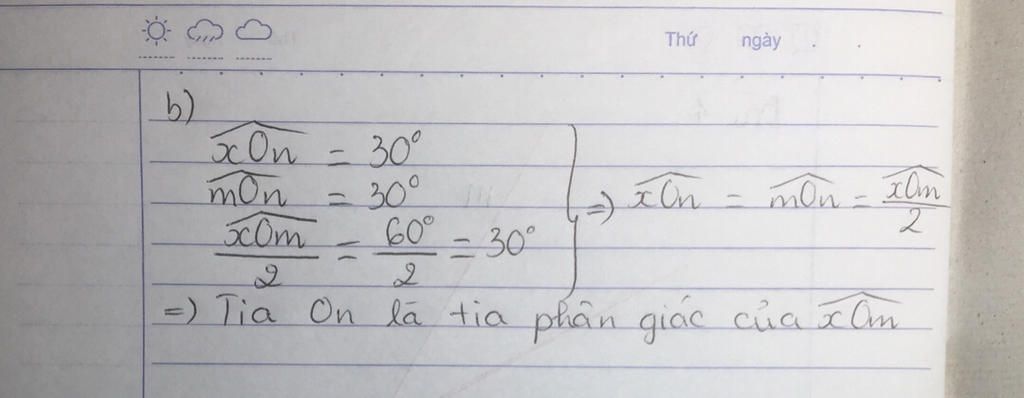 Thứ ngày . .
b)
$\widehat{xOn} = 30°$
$\widehat{mOn} = 30°$
$\frac{\widehat{xOm}}{2} = \frac{60°}{2} = 30°$
$\Rightarrow \widehat{xOn} = \widehat{mOn} = \frac{\widehat{xOm}}{2}$
=) Tia On là tia phân giác của $\widehat{xOm}$